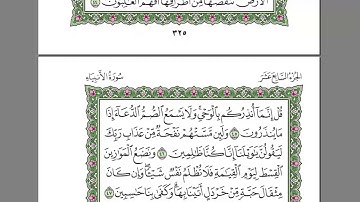 الأرض ننقصها من أطرافها أفهم الغالبون ٤٤
٣٢٥
الجزء السابع عشر
سورة الأنبياء
قُلْ إِنَّمَا أُنذِرُكُم بِالْوَحْيِ وَلَا يَسْمَعُ الصُّمُّ الدُّعَاءَ إِذَا
مَا يُنذَرُونَ ٤٥ وَلَئِن مَّسَّتْهُمْ نَفْحَةٌ مِّنْ عَذَابِ رَبِّكَ
لَيَقُولُنَّ يَا وَيْلَنَا إِنَّا كُنَّا ظَالِمِينَ ٤٦ وَنَضَعُ الْمَوَازِينَ
الْقِسْطَ لِيَوْمِ الْقِيَامَةِ فَلَا تُظْلَمُ نَفْسٌ شَيْئًا وَإِن كَانَ
مِثْقَالَ حَبَّةٍ مِّنْ خَرْدَلٍ أَتَيْنَا بِهَا وَكَفَى بِنَا حَاسِبِينَ ٤٧